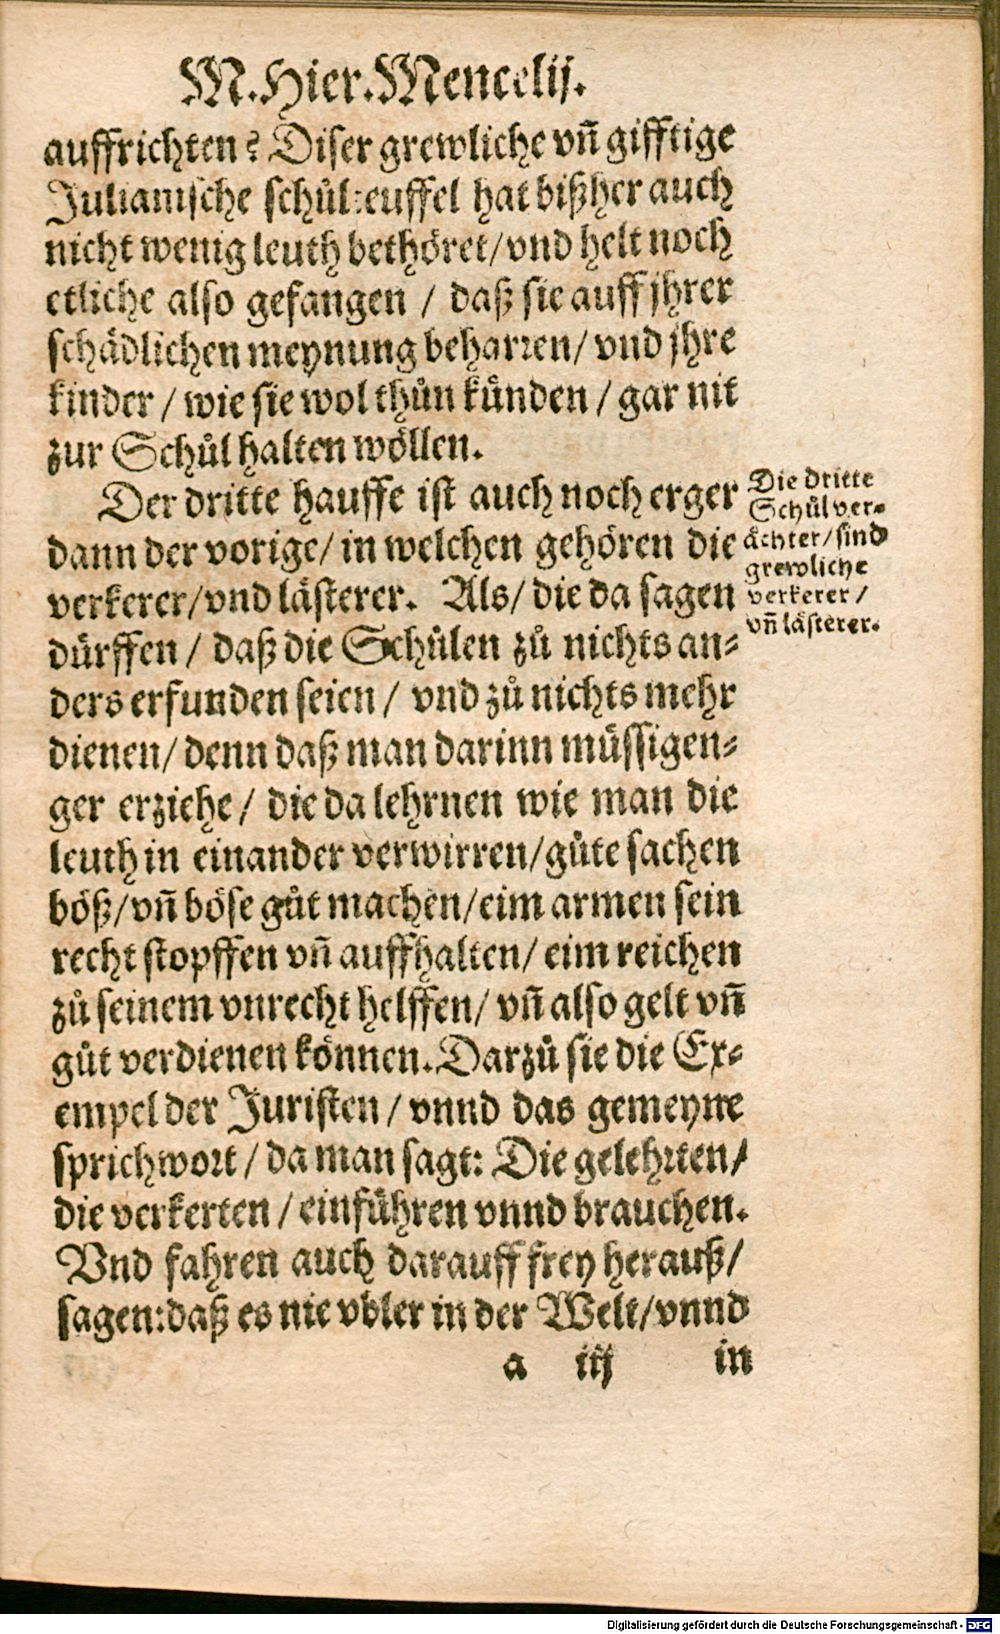 M. Hier. Mencelij.
auffrichten? Diser grewliche vñ gifftige
Julianische schůlteuffel hat bißher auch
nicht wenig leuth bethöret/ vnd helt noch
etliche also gefangen / daß sie auff jhrer
schädlichen meynung beharren/ vnd jhre
kinder / wie sie wol thůn künden / gar nit
zur Schůl halten wöllen.
Der dritte hauffe ist auch noch erger
dann der vorige/ in welchen gehören die
verkerer/ vnd lästerer. Als/ die da sagen
dürffen / daß die Schůlen zů nichts an-
ders erfunden seien / vnd zů nichts mehr
dienen/ denn daß man darinn müssigen-
ger erziehe / die da lehrnen wie man die
leuth in einander verwirren/ gůte sachen
böß/ vñ böse gůt machen/ eim armen sein
recht stopffen vñ auffhalten/ eim reichen
zů seinem vnrecht helffen/ vñ also gelt vñ
gůt verdienen können. Darzů sie die Ex-
empel der Juristen / vnnd das gemeyne
sprichwort / da man sagt: Die gelehrten/
die verkerten / einführen vnnd brauchen.
Vnd fahren auch darauff frey herauß/
sagen: daß es nie vbler in der Welt/ vnnd
a iij in
Die dritte
Schůlver-
ächter/ sind
grewliche
verkerer /
vñ lästerer.
Digitalisierung gefördert durch die Deutsche Forschungsgemeinschaft - DFG